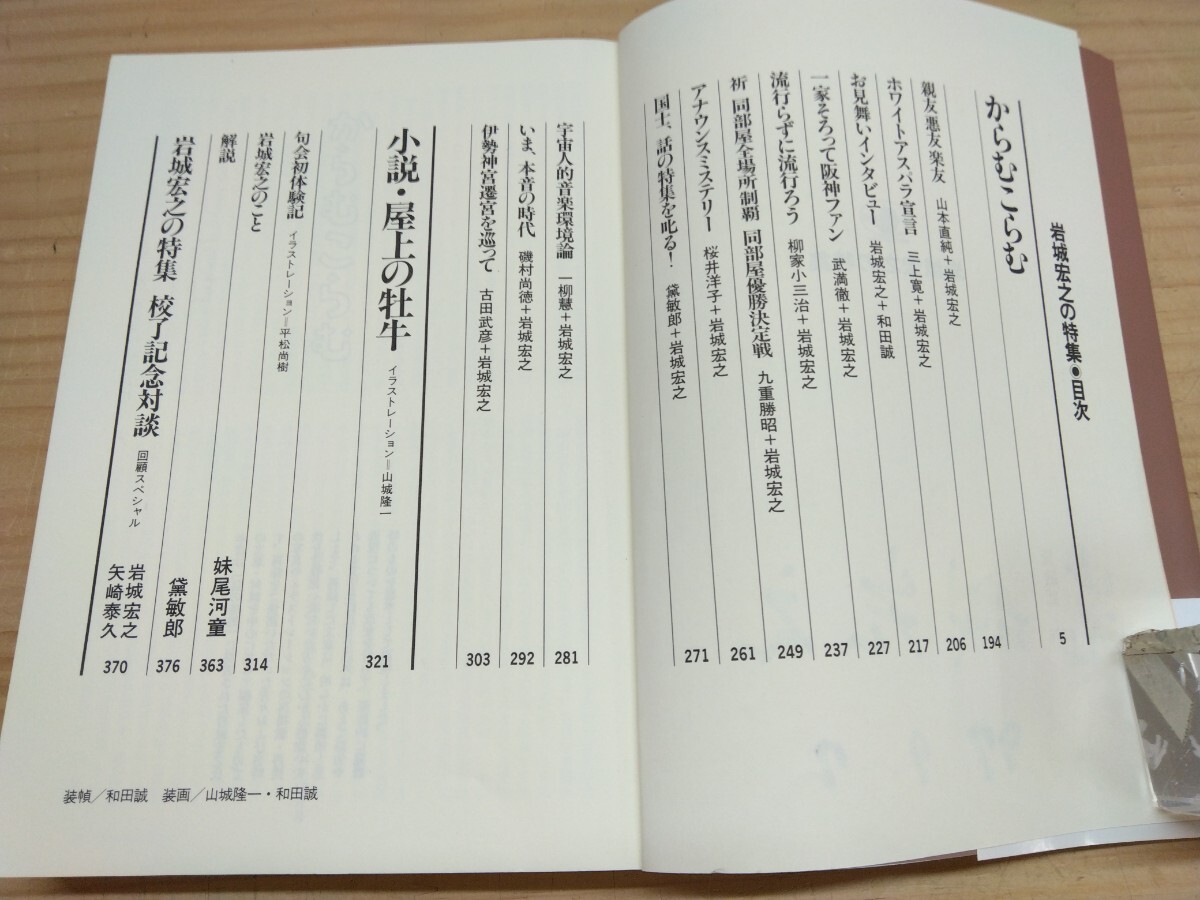 岩城宏之の特集●目次
からむこらむ 5
親友悪友楽友 山本直純+岩城宏之 194
ホワイトアスパラ宣言 三上寛+岩城宏之 206
お見舞いインタビュー 岩城宏之+和田誠 217
一家そろって阪神ファン 武満徹+岩城宏之 227
流行らずに流行ろう 柳家小三治+岩城宏之 237
祈 同部屋全場所制覇 同部屋優勝決定戦 九重勝昭+岩城宏之 249
アナウンスミステリー 桜井洋子+岩城宏之 261
国士、話の特集を叱る! 黛敏郎+岩城宏之 271
宇宙人的音楽環境論 一柳慧+岩城宏之 281
いま、本音の時代 磯村尚徳+岩城宏之 292
伊勢神宮遷宮を巡って 古田武彦+岩城宏之 303
小説・屋上の牡牛 イラストレーション=山城隆一 321
句会初体験記 イラストレーション=平松尚樹 314
岩城宏之のこと 妹尾河童 363
解説 黛敏郎 376
岩城宏之の特集 校了記念対談 回顧スペシャル 岩城宏之 矢崎泰久 370
装幀/和田誠 装画/山城隆一・和田誠